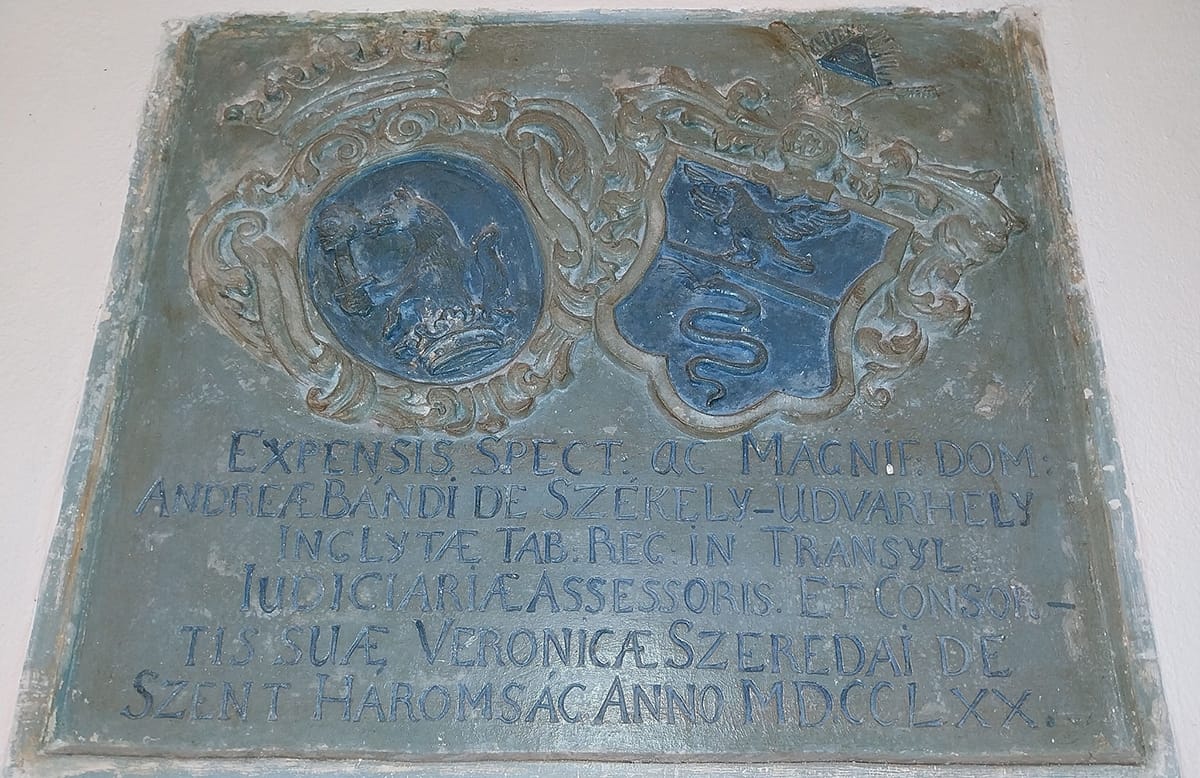 EXPENSIS SPECT. ac MAGNIF. DOM:
ANDREÆ BÁNDI DE SZÉKELY-UDVARHELY
INCLYTÆ TAB. REG. IN TRANSYL
IUDICIARIÆ ASSESSORIS. ET CONSOR-
TIS SUÆ, VERONICÆ SZEREDAI DE
SZENT HÁROMSÁG ANNO MDCCLXX.